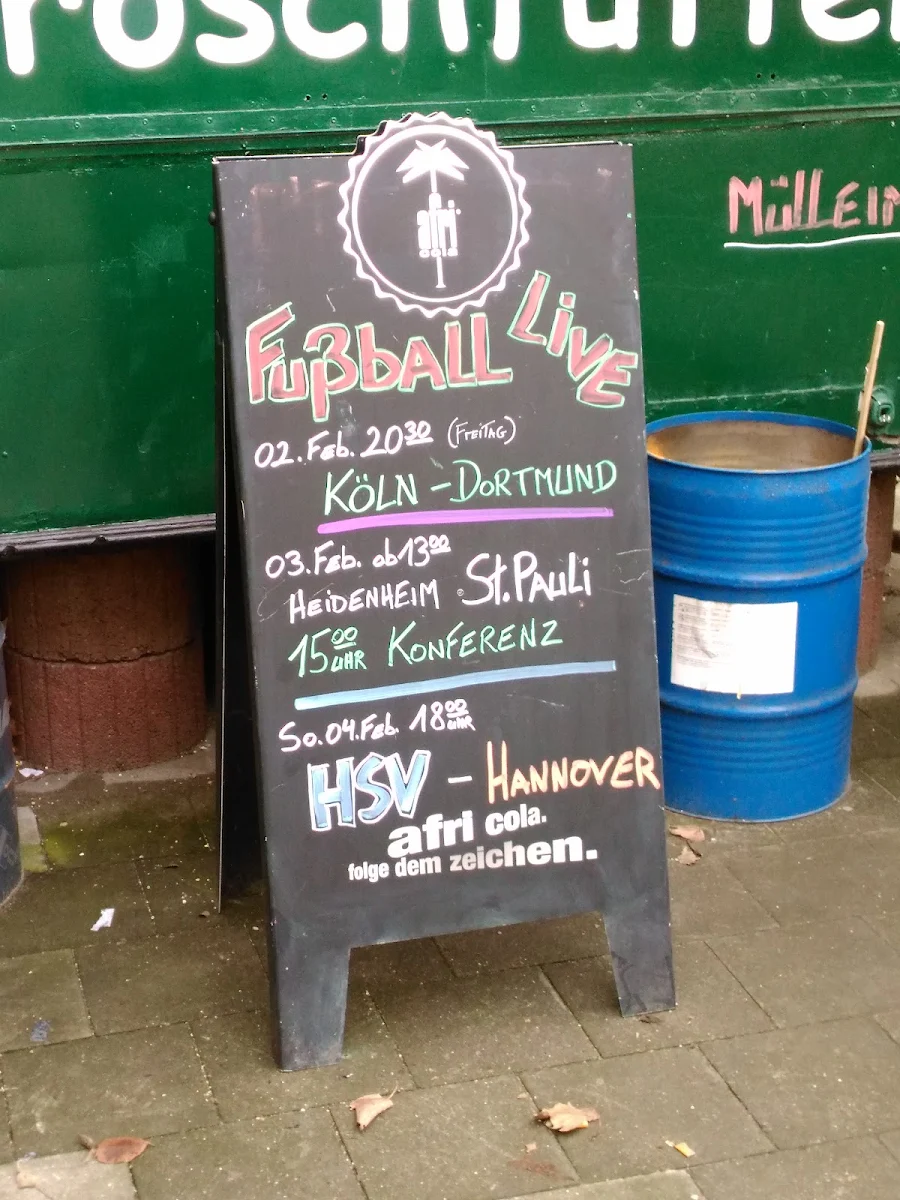 afri
cola
Fußball Live
02. Feb. 20 30 (Freitag)
KÖLN - DORTMUND
03. Feb. ab 13 00
HEIDENHEIM St. PAULi
15 00 UHR KONFERENZ
So. 04. Feb. 18 00 UHR
HSV - HANNOVER
afri cola.
folge dem zeichen.